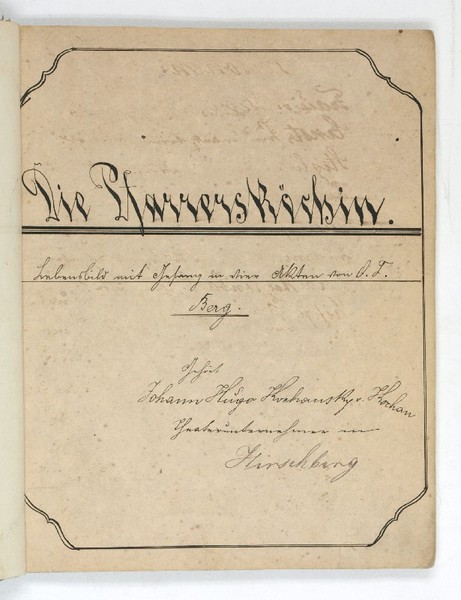 Die Pfarrersköchin.
Lebensbild mit Gesang in vier Akten von O. F.
Berg.
Gehört
Johann Hugo Kochansky v. Kochan
Theaterunternehmer in
Hirschberg